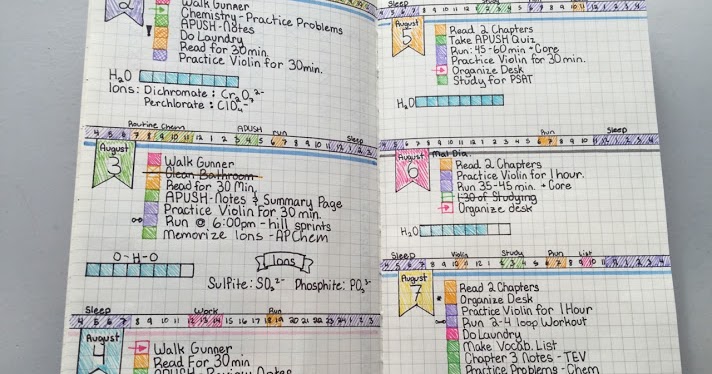 2
Walk Gunner
Chemistry-Practice Problems
APUSH-Notes
Do Laundry
Read for 30min.
Practice Violin for 30min.
H₂O
Ions: Dichromate: Cr₂O₇²⁻
Perchlorate: ClO₄⁻
Routine Chem APUSH Run Sleep
4 5 6 7 8 9 10 11 12 1 2 3 4 5 6 7 8 9 10 11 12 1 2 3
August
3
Walk Gunner
Clean Bathroom
Read for 30 Min.
APUSH-Notes & Summary Page
Practice Violin for 30 min.
Run @ 6:00pm - hill sprints
Memorize Ions - AP Chem
O-H-O
Ions
Sulfite: SO₃²⁻ Phosphite: PO₃³⁻
Sleep Work Run
4 5 6 7 8 9 10 11 12 13 14 15 16 17 18 19 20 21 22 23 24 1 2 3
August
4
Walk Gunner
Read For 30 min
APUSH-Review Notes
Sleep Study
August
5
Read 2 Chapters
Take APUSH Quiz
Run: 45-60 min + Core
Practice Violin for 30 min.
Organize Desk
Study for PSAT
H₂O
Run Sleep
4 5 6 7 8 9 10 11 12 1 2 3 4 5 6 7 8 9 10 11 12 1 2 3
August
6
Read 2 Chapters
Practice Violin for 1 hour.
Run 35-45 min. + Core
1:30 of Studying
Organize desk
H₂O
Sleep Violin Study Run List
August
7
Read 2 Chapters
Organize Desk
Practice Violin for 1 Hour
Run 2-4 loop Workout
Do Laundry
Make Vocab. List
Chapter 3 Notes - TEV
Practice Problems - Chem